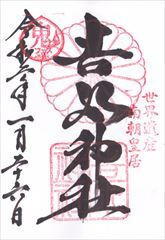 世界遺産
南朝皇居
吉水神社
令和二年一月二十六日